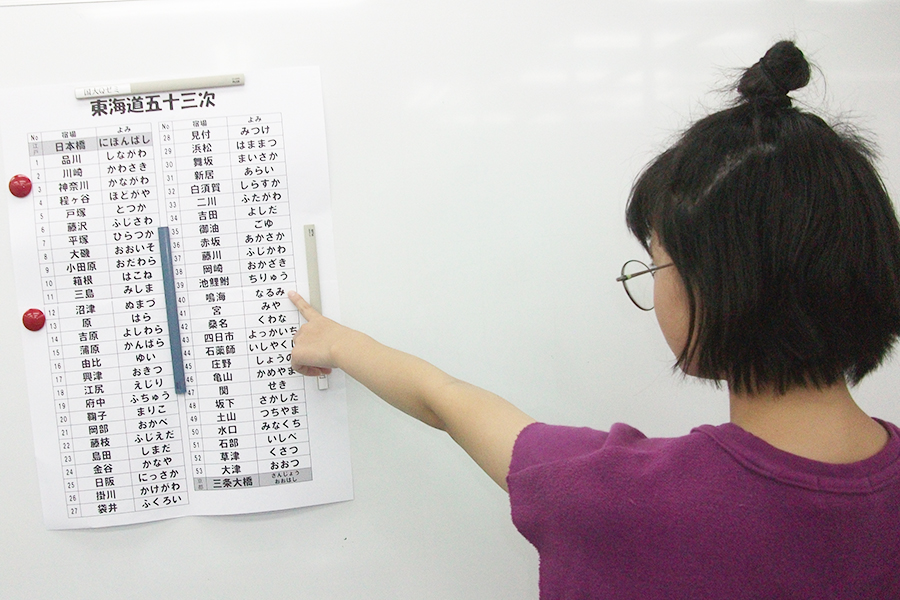 東海道五十三次
No 宿場 よみ
江戸 日本橋 にほんばし
1 品川 しながわ
2 川崎 かわさき
3 神奈川 かながわ
4 程ヶ谷 ほどがや
5 戸塚 とつか
6 藤沢 ふじさわ
7 平塚 ひらつか
8 大磯 おおいそ
9 小田原 おだわら
10 箱根 はこね
11 三島 みしま
12 沼津 ぬまづ
13 原 はら
14 吉原 よしわら
15 蒲原 かんばら
16 由比 ゆい
17 興津 おきつ
18 江尻 えじり
19 府中 ふちゅう
20 鞠子 まりこ
21 岡部 おかべ
22 藤枝 ふじえだ
23 島田 しまだ
24 金谷 かなや
25 日阪 にっさか
26 掛川 かけがわ
27 袋井 ふくろい
No 宿場 よみ
28 見付 みつけ
29 浜松 はままつ
30 舞坂 まいさか
31 新居 あらい
32 白須賀 しらすか
33 二川 ふたがわ
34 吉田 よしだ
35 御油 ごゆ
36 赤坂 あかさか
37 藤川 ふじかわ
38 岡崎 おかざき
39 池鯉鮒 ちりゅう
40 鳴海 なるみ
41 宮 みや
42 桑名 くわな
43 四日市 よっかいち
44 石薬師 いしやくし
45 庄野 しょうの
46 亀山 かめやま
47 関 せき
48 坂下 さかした
49 土山 つちやま
50 水口 みなくち
51 石部 いしべ
52 草津 くさつ
53 大津 おおつ
京都 三条大橋 さんじょうおおはし